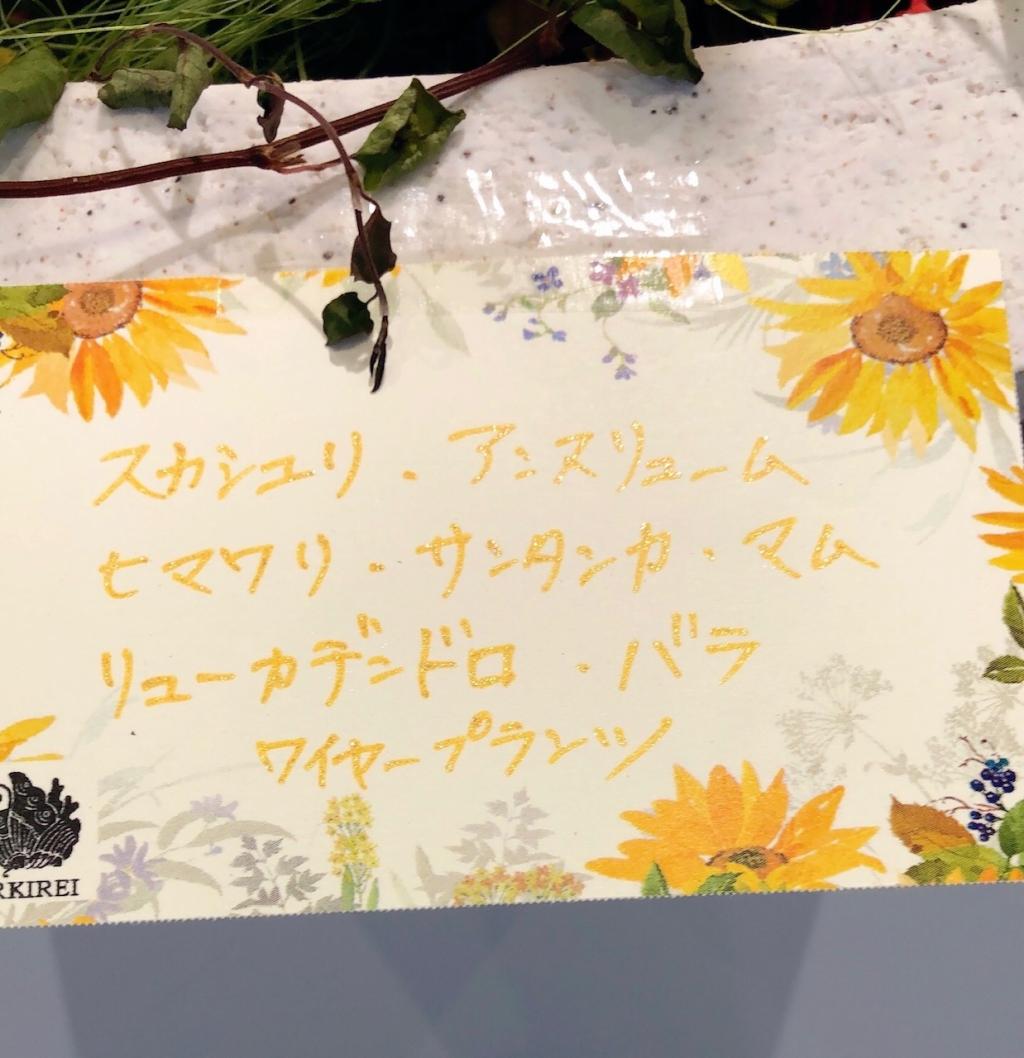 スカシユリ・アンスリューム
ヒマワリ・サンタンカ・マム
リューカデンドロ・バラ
ワイヤープランツ
RKIREI